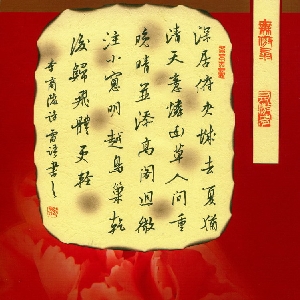 深居俯夾城去夏猶
清天意憐幽草人間重
晚晴並添高閣迥微
注小窻明越鳥巢乾
後歸飛體更輕
李商隱詩